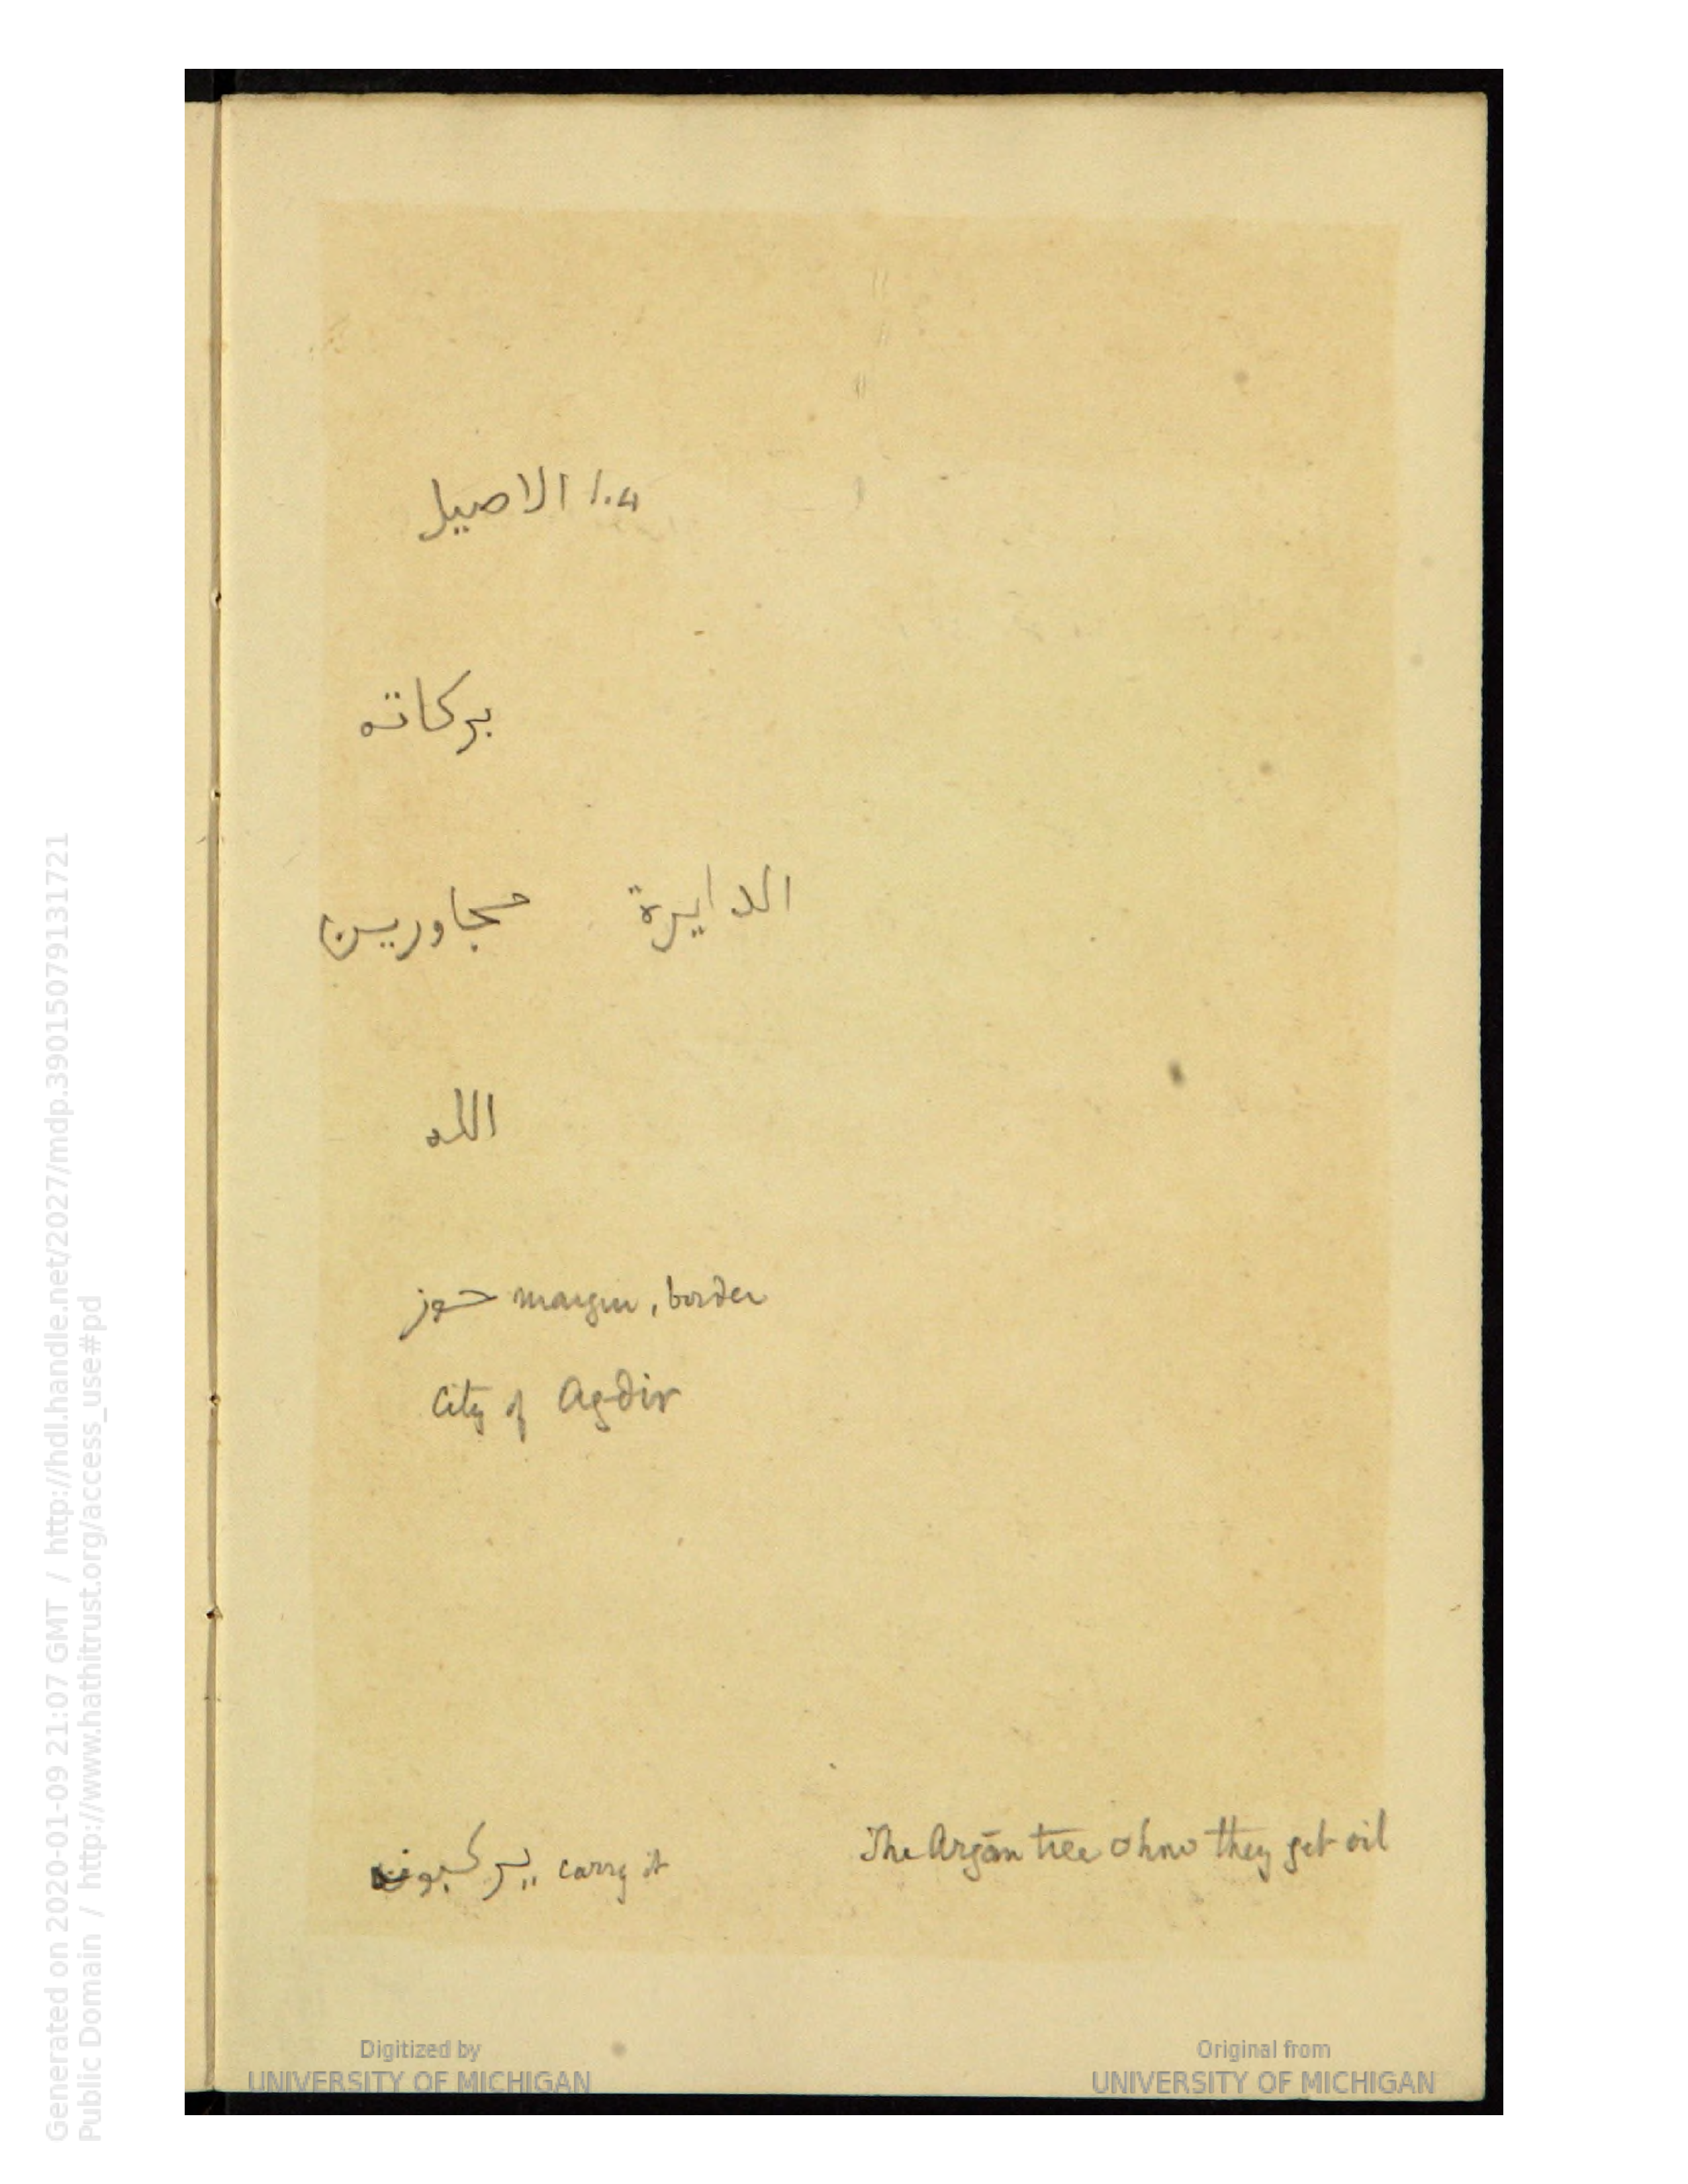 الاصيل ١٠٤
بركاته
الدايرة محجاورين
الله
حوز margin, border
City of Agdir
يركبون carry it
The Argān tree & how they get oil
Generated on 2020-01-09 21:07 GMT / http://hdl.handle.net/2027/mdp.39015079131721
Public Domain / http://www.hathitrust.org/access_use#pd
Digitized by
UNIVERSITY OF MICHIGAN
Original from
UNIVERSITY OF MICHIGAN